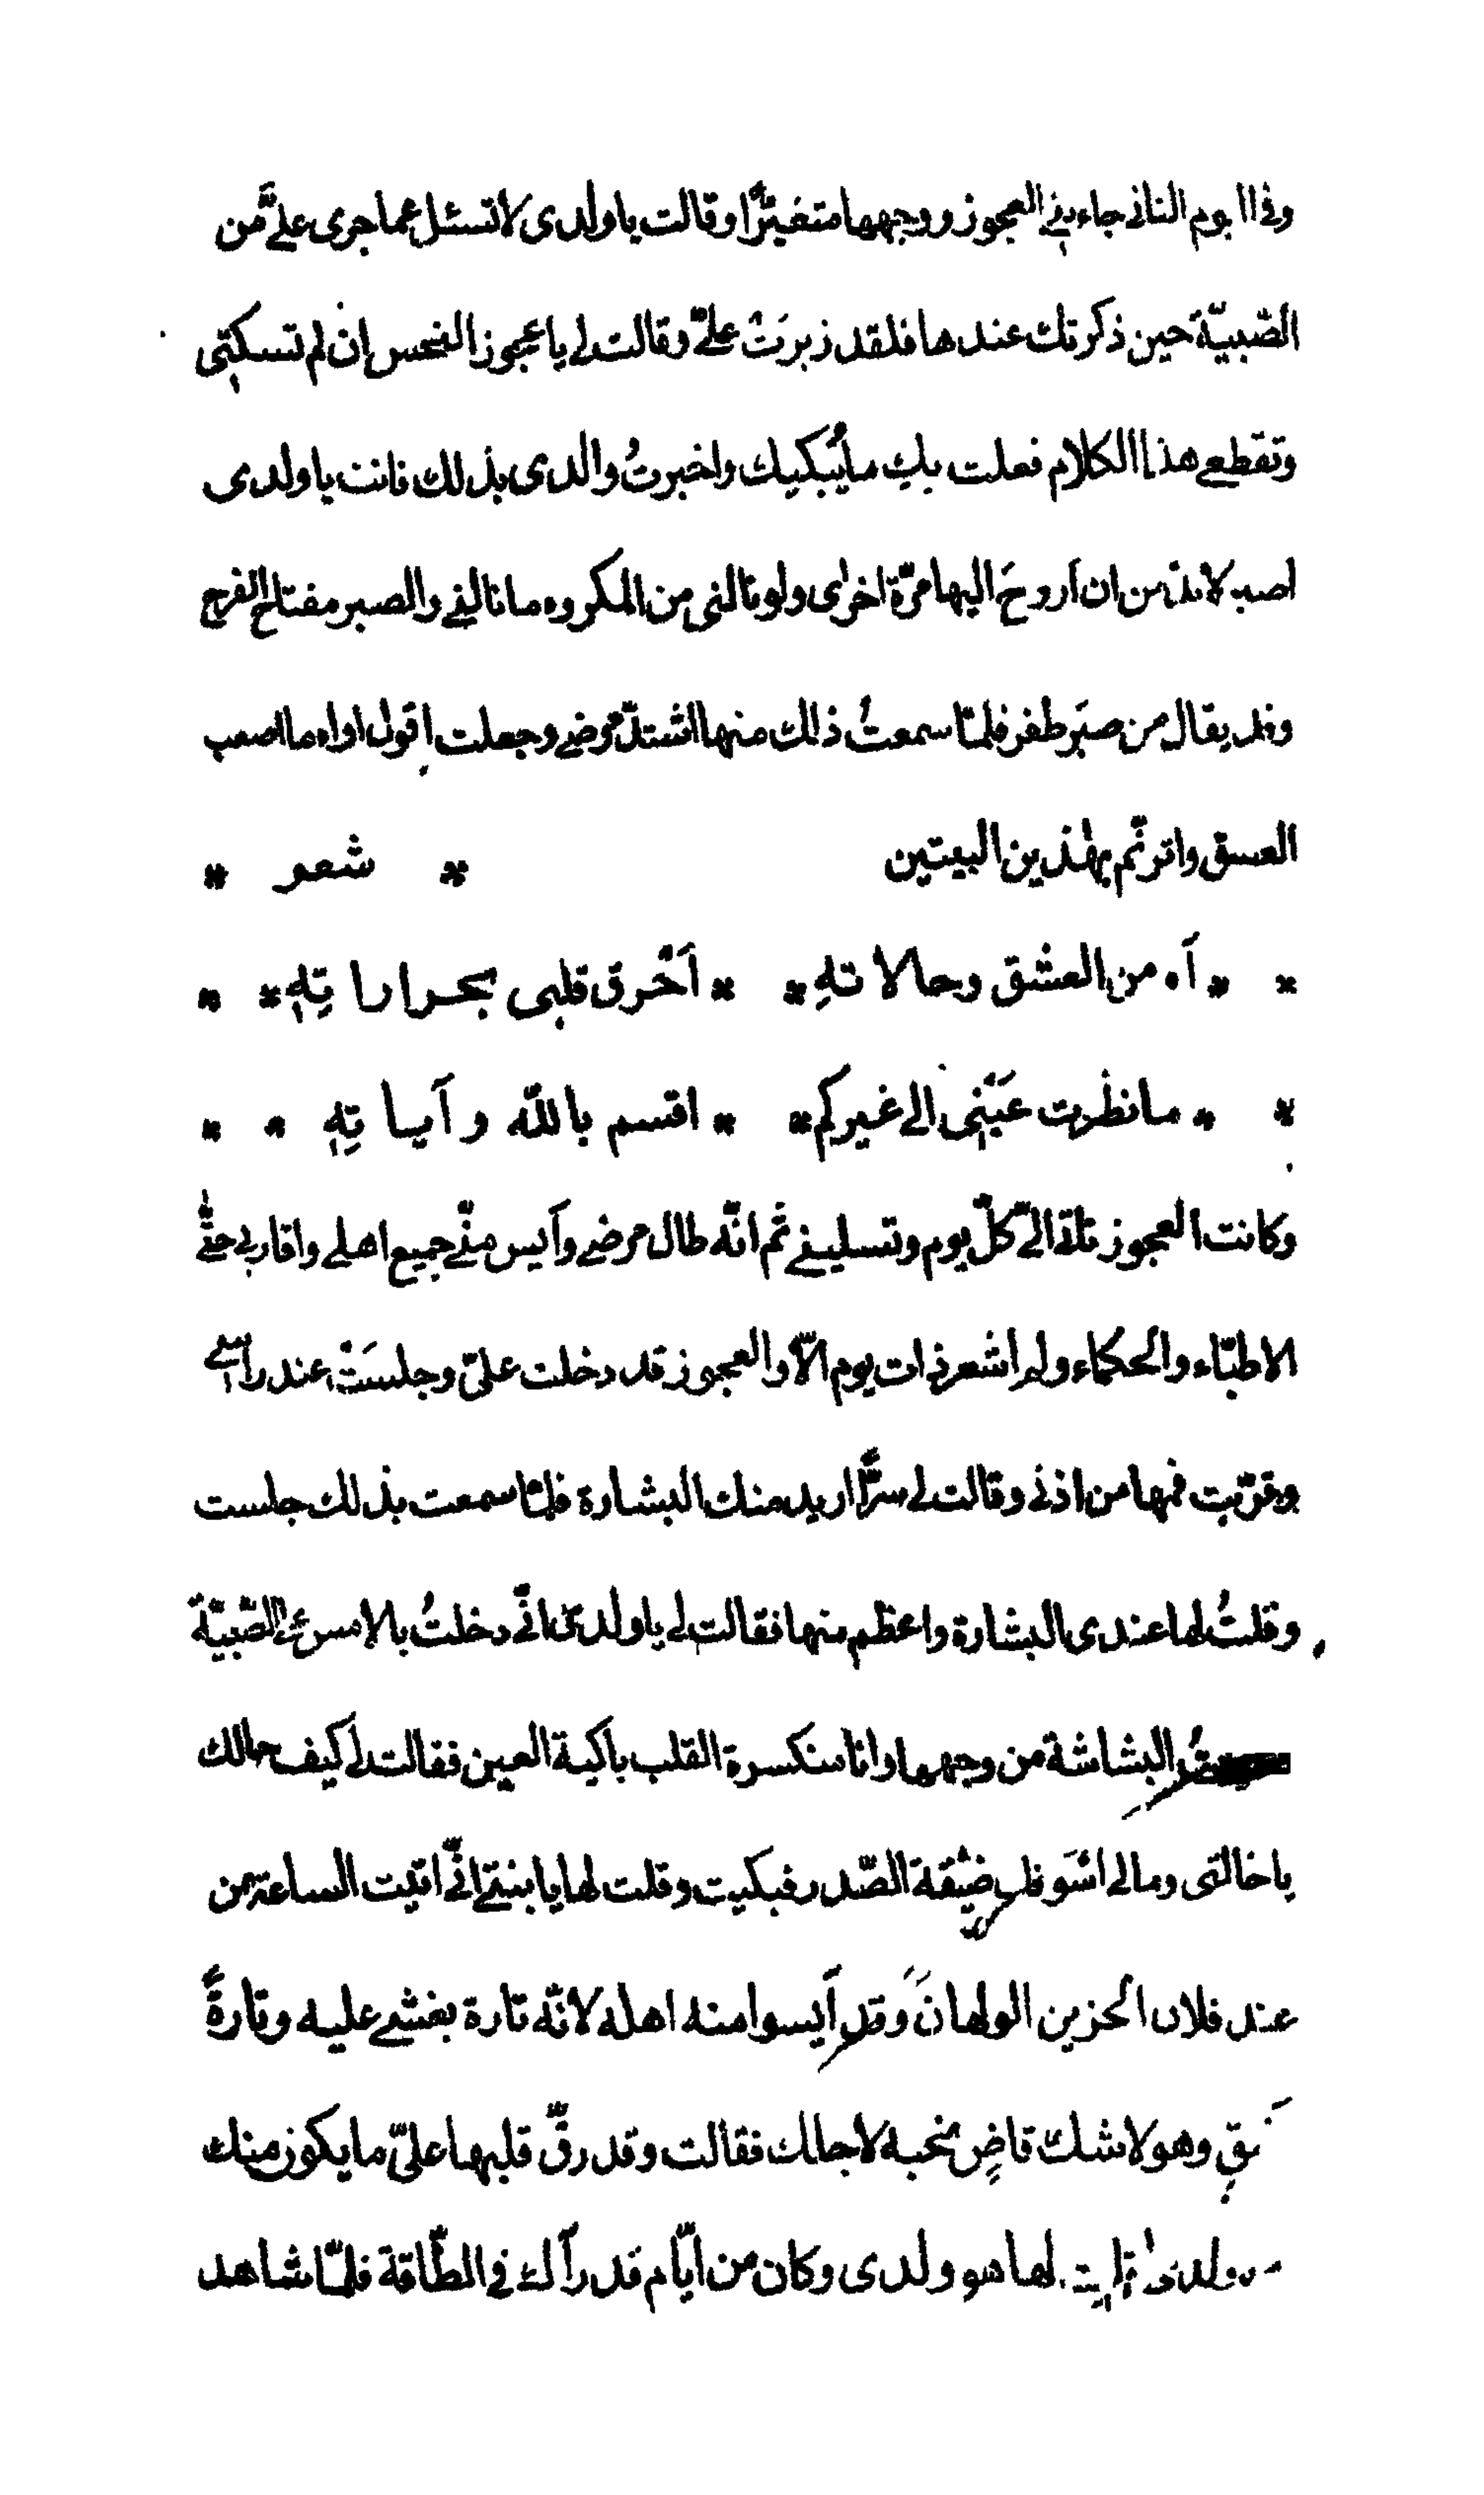 وفي اليوم الثاني جاءتني العجوز ووجهها متغيّرًا وقالت يا ولدى لا تسئل عما جرى علىَّ من
الصّبيّة حين ذكرتك عندها فلقد زبرتْ علىّ وقالت لي يا عجوز النحس ان لم تسكتى
وتقطعي هذا الكلام فعلت بكِ ما يُبكيك واخبرتُ والدى بذلك فانت يا ولدى
اصبر لا بدّ من ان اَروحَ اليها مرّة اخرٰى ولو نالنى من المكروه ما نالني والصبر مفتاح الفرج
وقد يقال من صبَر ظفر فلمّا سمعتُ ذالك منها اشتدّ مرضي وجعلت اقول اواه ما اصعب
العسق واترنّم بهٰذين البيتين * شعر *
* * اَه من العشق وحالاتهِ * * اَحْرق قلبى بحراراتِهِ * *
* * ما نظرت عَيْنِى الى غيركم * * اقسم باللّٰه واَياتِهِ * *
وكانت العجوز تأتي اليّ كلّ يوم وتسليني ثم انّه طال مرضي واَيس منّي جميع اهلي واقاربي حتّٰى
الاطبّاء والحكماء ولم اشعر ذات يوم الّا والعجوز قد دخلت علىّ وجلسَتْ عند رأسي
وقرّبت فمها من اذني وقالت لي سرًّا اريد منك البشارة فلمّا سمعت بذلك جلست
وقلتُ لها عندى البشارة واعظم منها فقالت لي يا ولدى انّي دخلتُ بالامس على الصّبيّة
البشاشة من وجهها وانا منكسرة القلب باكية العين فقالت لي كيف حالك
يا خالتى ومالي اشَوفك ضيّقة الصّدر فبكيت وقلت لها يا بنيّتي انّي اتيت الساعة من
عند فلان الحزين الولهانَ وَقد اَيسوا منه اهله لانّه تارة يغشي عليه وتارةً
يفِق وهو لا شكّ قاضٍ نحبه لاجلك فقالت وقد رقَّ قلبها علىّ ما يكون منك
لها هو ولدى وكان من ايّام قد رآك في الطّاقة فلمّا شاهد